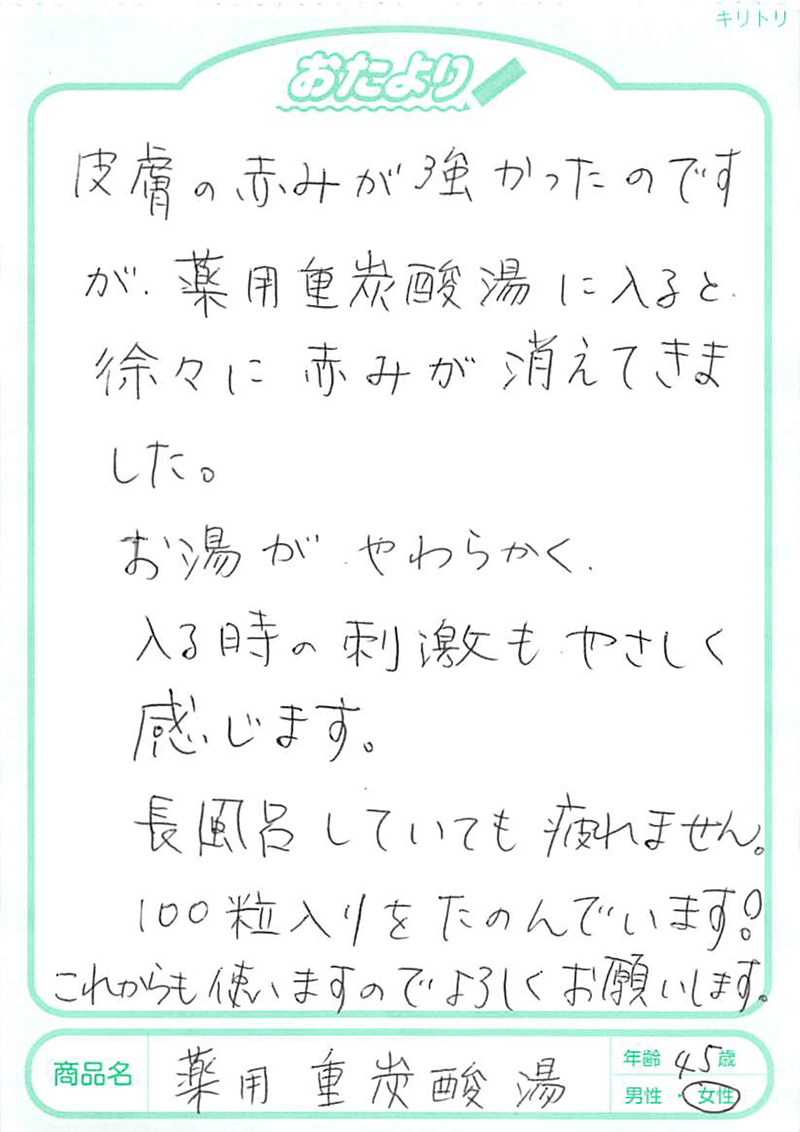 キリトリ
おたより
皮膚の赤みが強かったのです
が、薬用重炭酸湯に入ると、
徐々に赤みが消えてきま
した。
お湯がやわらかく、
入る時の刺激もやさしく
感じます。
長風呂していても疲れません。
100粒入りをたのんでいます!
これからも使いますのでよろしくお願いします。
商品名 薬用重炭酸湯 年齢 45歳
男性・女性